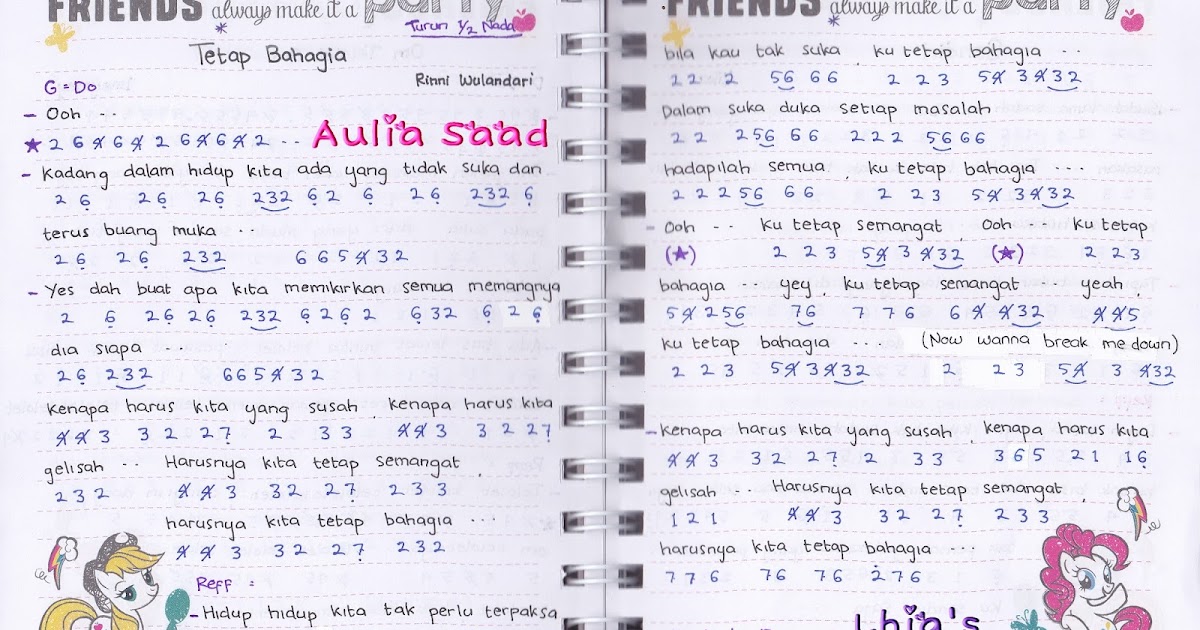 FRIENDS always make it a party
Turun 1/2 Nada
Tetap Bahagia
G = Do
Rinni Wulandari
- Ooh ..
★ 2 6 4̸ 6 4̸ 2 6 4̸ 6 4̸ 2 ..
Aulia Saad
- Kadang dalam hidup kita ada yang tidak suka dan
2 6̣ 2 6̣ 2 6̣ 232 6̣ 2 6̣ 2 6̣ 232 6̣
terus buang muka ..
2 6̣ 2 6̣ 232 6 6 5 4̸ 3 2
- Yes dah buat apa kita memikirkan semua memangnya
2 6̣ 2 6̣ 2 6̣ 232 6̣ 2 6̣ 2 6̣ 32 6̣ 2 6̣
dia siapa ..
2 6̣ 232 6 6 5 4̸ 3 2
Kenapa harus kita yang susah kenapa harus kita
4̸ 4̸ 3 3 2 2 7̣ 2 3 3 4̸ 4̸ 3 3 2 2 7̣
gelisah .. Harusnya kita tetap semangat
2 3 2 4̸ 4̸ 3 3 2 2 7̣ 2 3 3
harusnya kita tetap bahagia ...
4̸ 4̸ 3 3 2 2 7̣ 2 3 2
Reff :
- Hidup hidup kita tak perlu terpaksa
FRIENDS always make it a party
bila kau tak suka ku tetap bahagia ..
2 2 2 56 6 6 2 2 3 5 4̸ 3 4̸32
Dalam suka duka setiap masalah
2 2 2 56 6 6 2 2 2 56 6 6
hadapilah semua ku tetap bahagia ...
2 2 2 56 6 6 2 2 3 5 4̸ 3 4̸32
- Ooh .. Ku tetap semangat Ooh .. ku tetap
(★) 2 2 3 54̸ 3 4̸32 (★) 2 2 3
bahagia .. yey ku tetap semangat yeah
5 4̸ 2 56 76 7 7 6 6 4̸ 4̸32 4̸4̸5
ku tetap bahagia ... (Now wanna break me down)
2 2 3 5 4̸ 3 4̸32 2 2 3 54̸ 3 4̸32
- Kenapa harus kita yang susah kenapa harus kita
4̸ 4̸ 3 3 2 2 7̣ 2 3 3 3 6 5 2 1 1 6̣
gelisah .. Harusnya kita tetap semangat
1 2 1 4̸ 4̸ 3 3 2 2 7̣ 2 3 3
harusnya kita tetap bahagia ..
7 7 6 7 6 7 6 2̇ 7 6
Lhia's